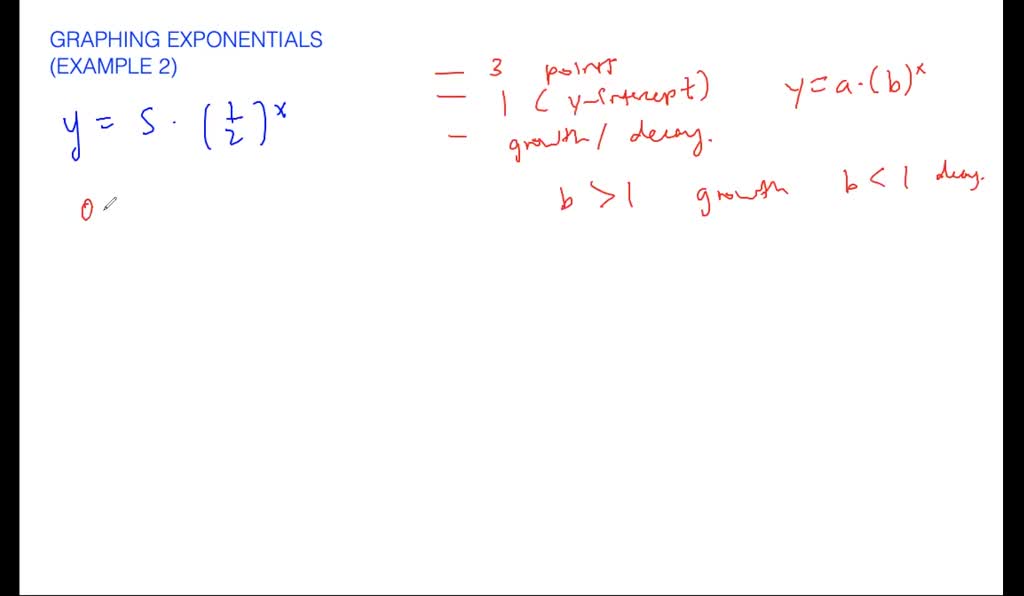 GRAPHING EXPONENTIALS
(EXAMPLE 2)
y = 5 · (1/2)^x
— 3 points
— 1 (y-intercept)
— growth / decay.
y = a · (b)^x
b > 1 growth b < 1 decay.
0